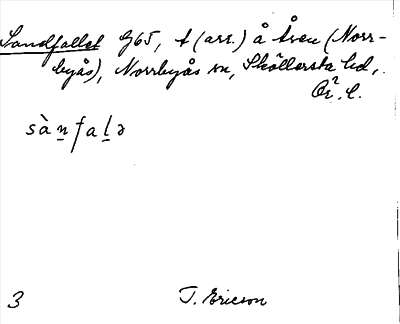 Sandfallet G65, t (arr.) å Åsen (Norr-
byås), Norrbyås sn, Sköllersta hd,
Ör. l.
sànfalə
3 T. Ericson